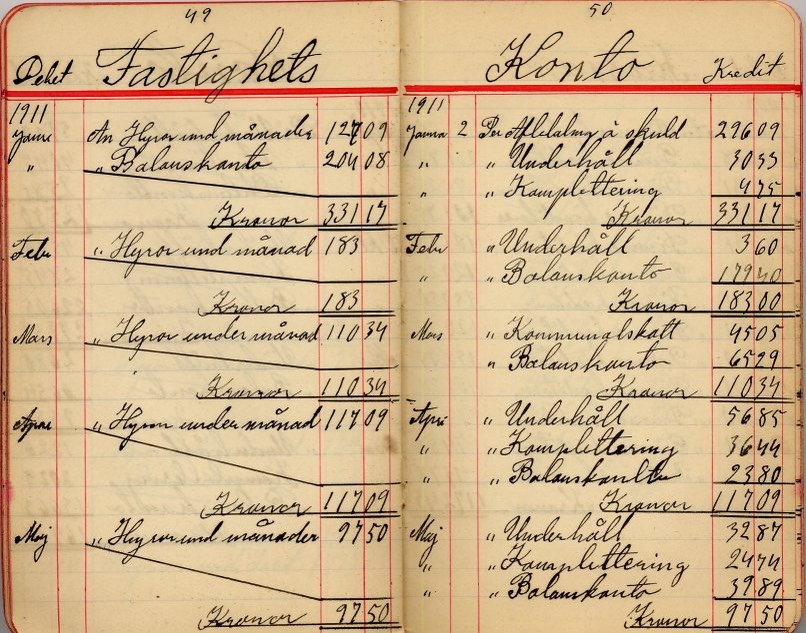 49
Debet Fastighets
1911
Janu An Hyror und månader 127 09
„ „ Balanskonto 204 08
Kronor 331 17
Febr „ Hyror und månad 183
Kronor 183
Mars „ Hyror under månad 110 34
Kronor 110 34
Apri „ Hyror under månad 117 09
Kronor 117 09
Maj „ Hyror und månader 97 50
Kronor 97 50
50
Konto Kredit
1911
Janua 2 Per Afbetalning å skuld 296 09
„ „ Underhåll 30 33
„ „ Komplettering 4 75
Kronor 331 17
Febr „ Underhåll 3 60
„ „ Balanskonto 179 40
Kronor 183 00
Mars „ Kommunalskatt 45 05
„ „ Balanskonto 65 29
Kronor 110 34
Apri „ Underhåll 56 85
„ „ Komplettering 36 44
„ „ Balanskonto 23 80
Kronor 117 09
Maj „ Underhåll 32 87
„ „ Komplettering 24 74
„ „ Balanskonto 39 89
Kronor 97 50